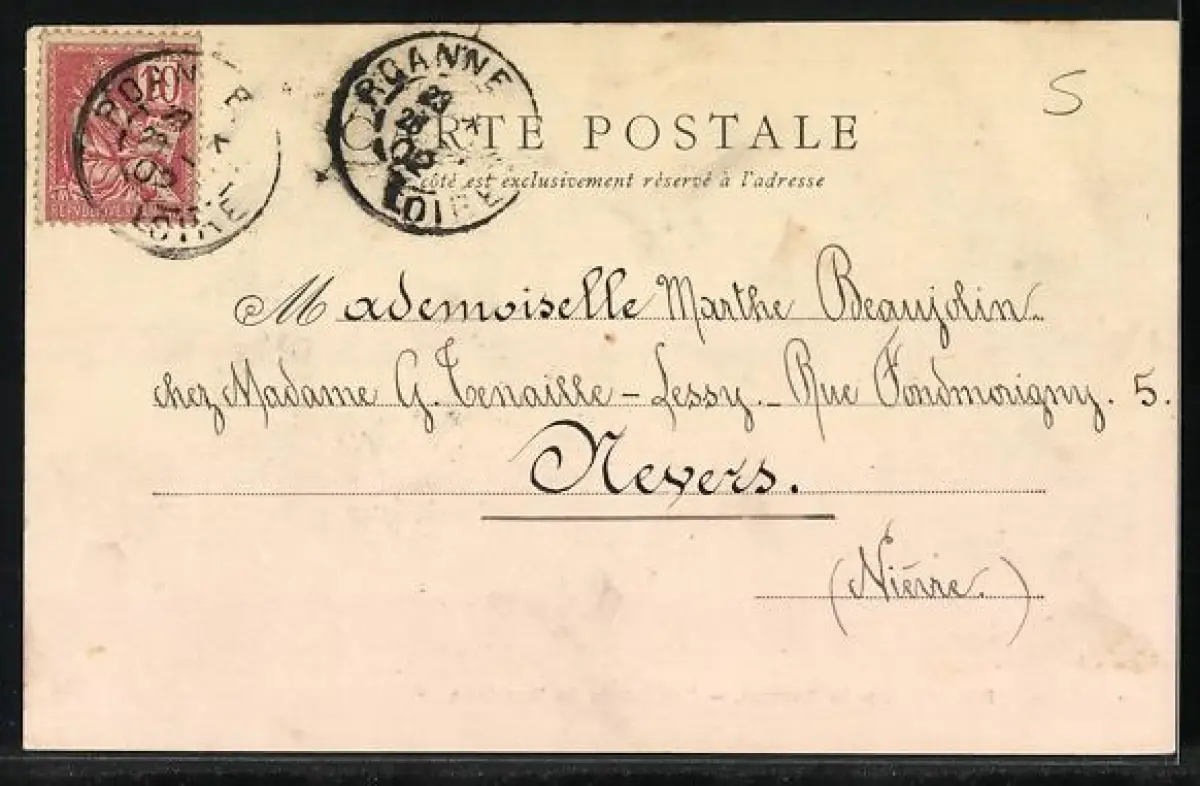 10
ROANNE
LOIRE
ROANNE
LOIRE
S
CARTE POSTALE
côté est exclusivement réservé à l'adresse
Mademoiselle Marthe Beaujolin
chez Madame G. Tenaille - Lessy. - Rue Fondmorigny. 5.
Nevers.
(Nièvre.)